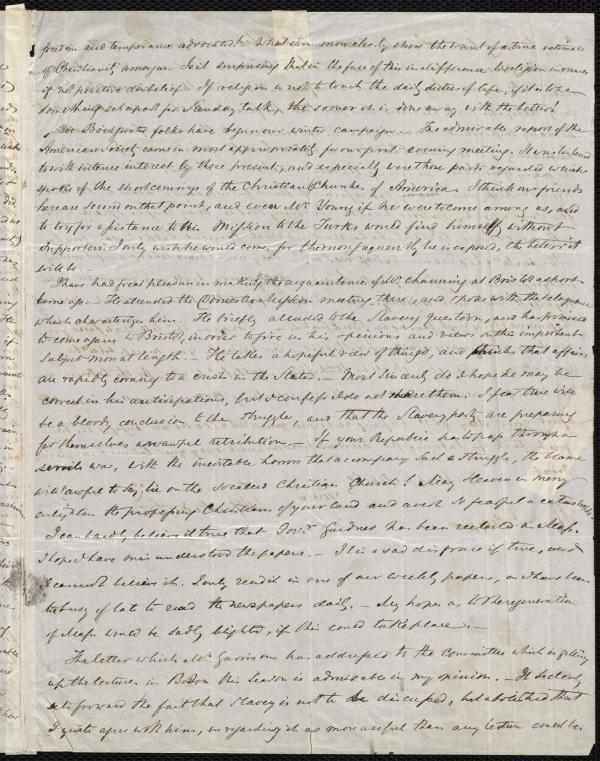 freedom and temperance advocated! What can more clearly show the want of a true estimate
of Christianity among us. Is it surprising that in the face of this indifference to religion increases
if not positive disbelief. If religion is not to touch the daily duties of life, if it is to be a
something set apart for Sunday talk, the sooner it is done away with the better!
We Bridgwater folks have begun our winter campaign. The admirable report of the
American Society came in most appropriately for our first evening meeting. It was listened
to with intense interest by those present, and especially were those parts regarded which
spoke of the short comings of the Christian Churches of America. I think our friends
here are sound on that point, and even Mr. Young if he were to come among us, and
to try for assistance to his Mission to the Turks would find himself without
supporters. I only wish he would come, for the more frequently he is exposed, the better it
will be —
I have had great pleasure in making the acquaintance of Mr. Channing at Bristol a short
time ago. He attended the Domestic Mission meeting there, and spoke with the eloquence
which characterizes him. He briefly alluded to the Slavery question, and has promised
to come again to Bristol, in order to give us his opinions and views on this important
subject more at length. He takes a hopeful view of things, and thinks that affairs
are rapidly coming to a crisis in the States. — Most sincerely do I hope he may be
correct in his anticipations, but I confess I do not share them. I fear there will
be a bloody conclusion to the struggle, and that the Slavery party are preparing
for themselves an awful retribution. — If your Republic has to pass through a
servile war, with the inevitable horrors that accompany such a struggle, the blame
will, awful to say, lie on the so called Christian Church! May Heaven in mercy
enlighten the professing Christians of your land and avert so fearful a catastrophe.
I can hardly believe it true that Govr. Gardner has been reelected in Mass.
I hope I have misunderstood the papers. — It is a sad disgrace if true, and
I cannot believe it. I only read it in one of our weekly papers, as I have been
too busy of late to read the newspapers daily. — My hopes as to the regeneration
of Mass. would be sadly blighted, if this could take place. —
The letter which Mr. Garrison has addressed to the committee which is getting
up the lectures in Boston this season is admirable in my opinion. — It so clearly
sets forward the fact that Slavery is not to be discussed, but abolished that
I quite agree with him, in regarding it as more useful than any lecture could be.